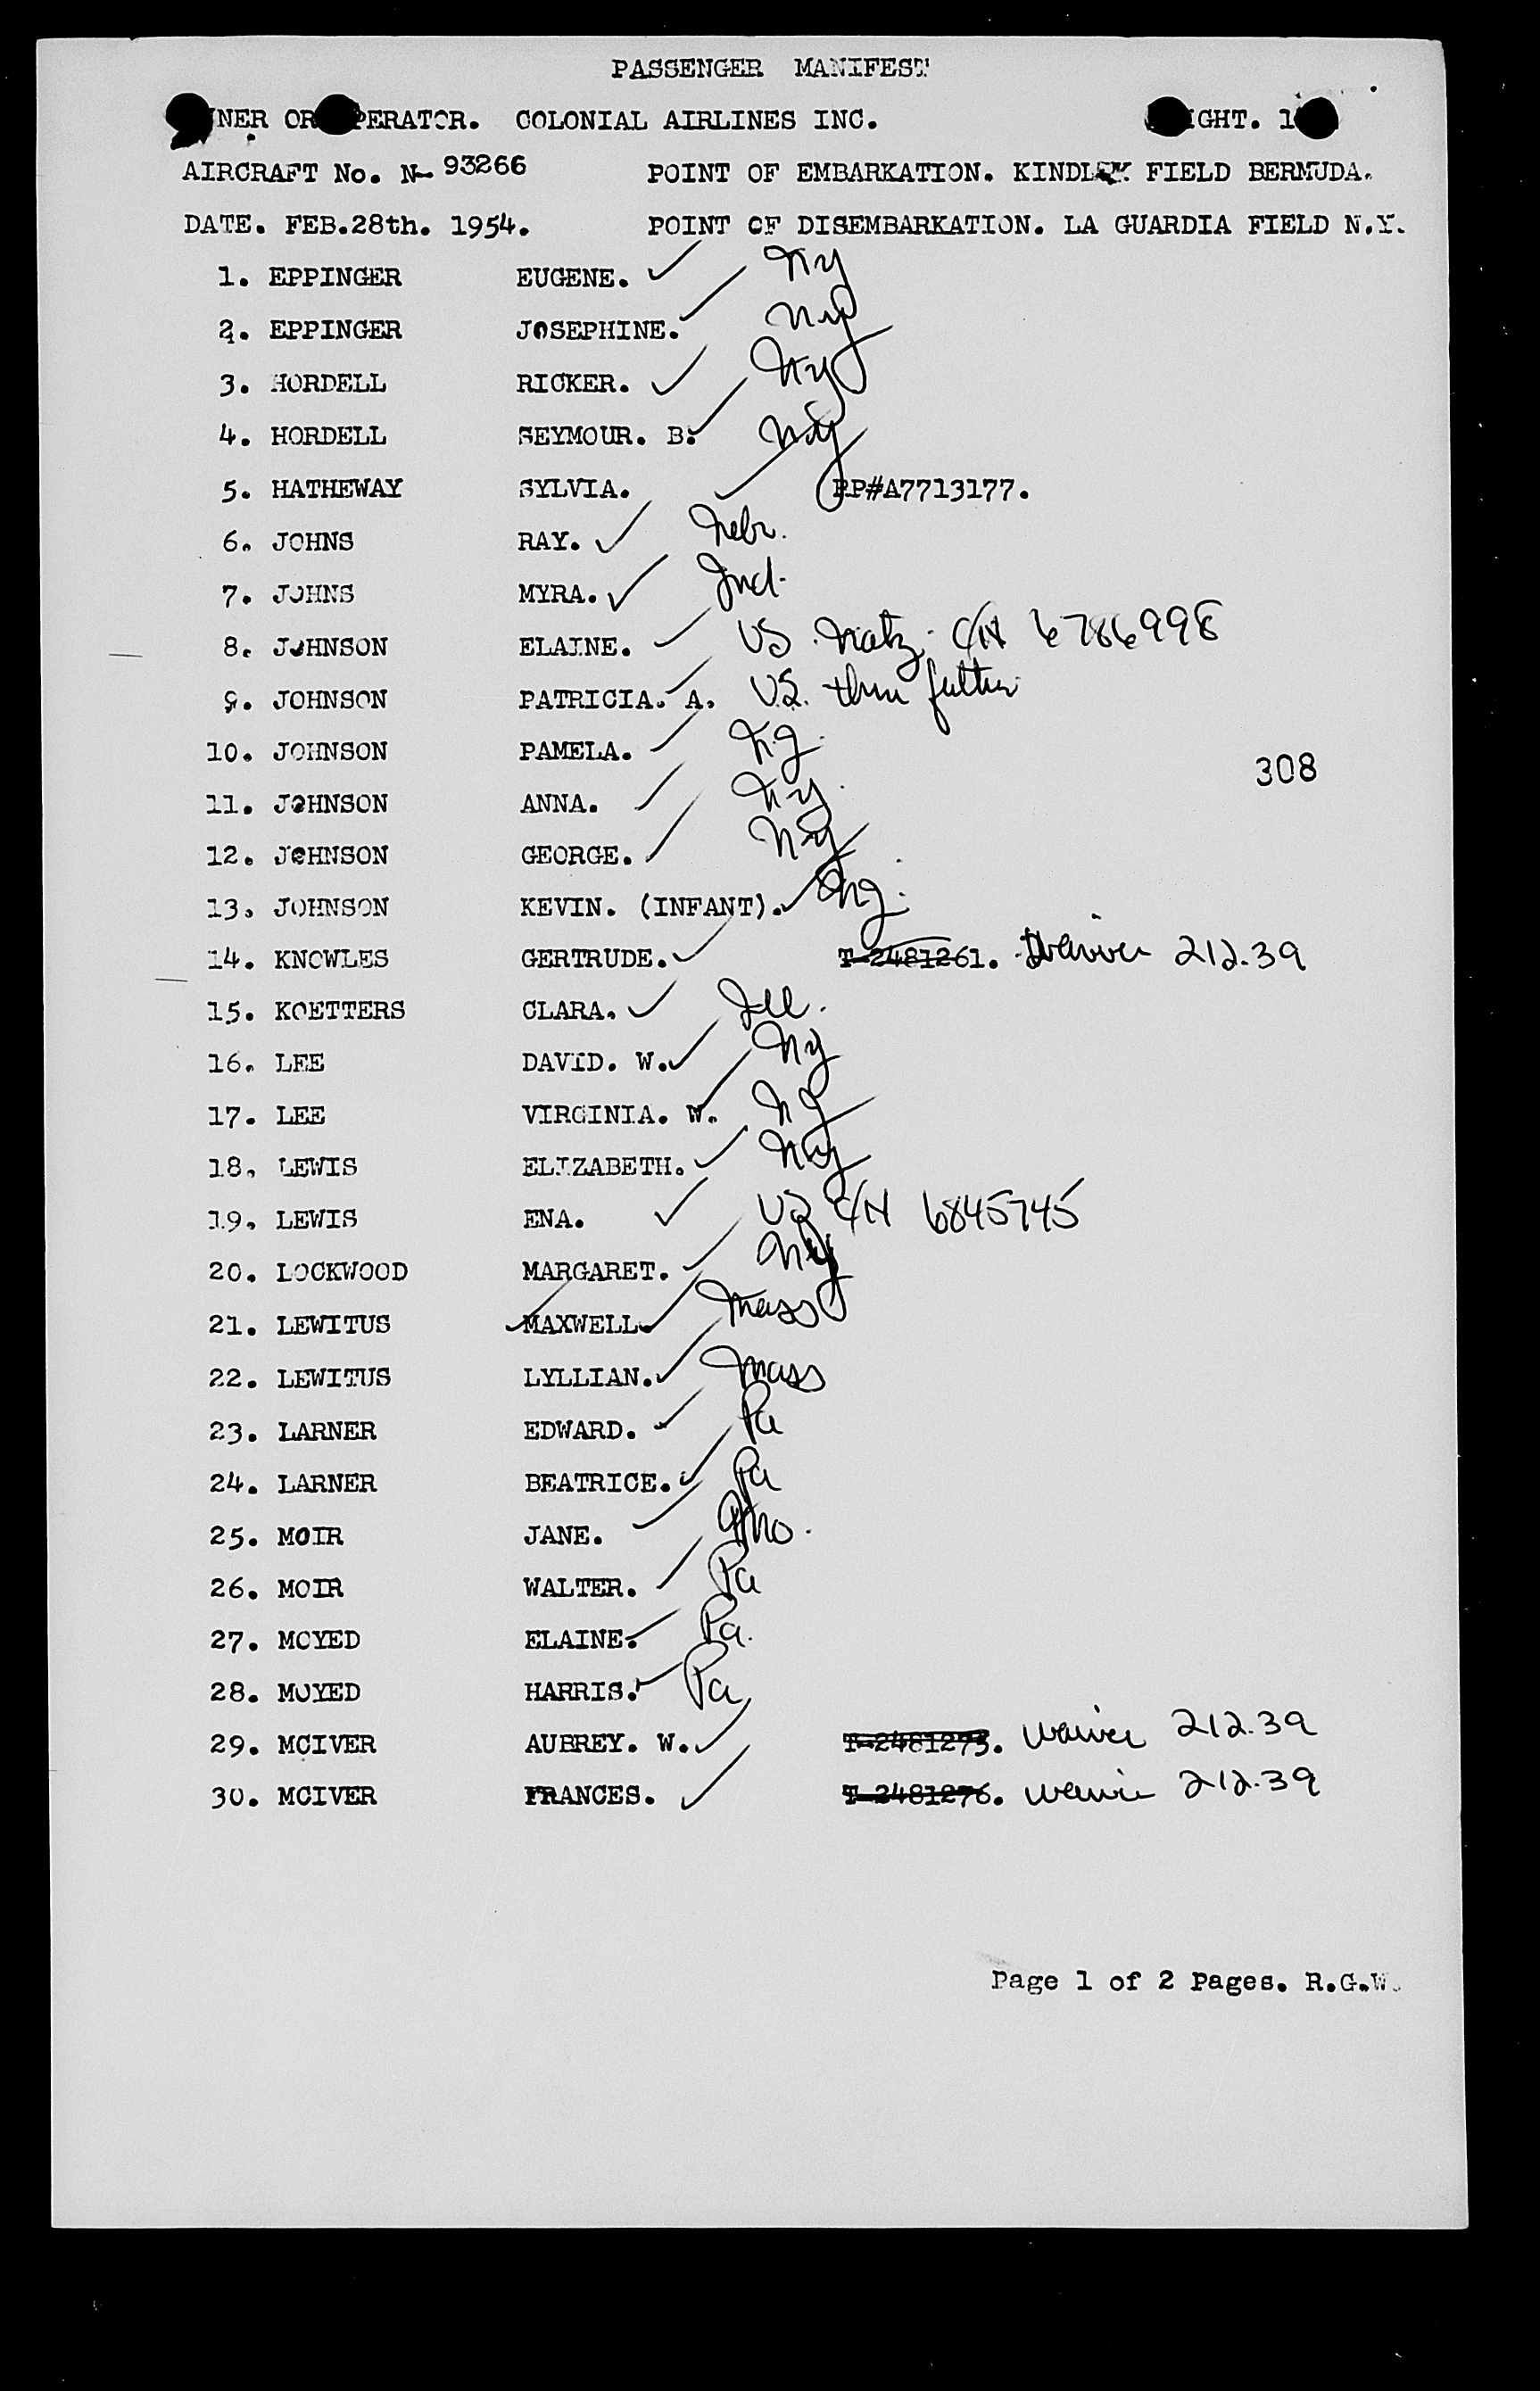 PASSENGER MANIFEST
OWNER OR OPERATOR. COLONIAL AIRLINES INC. FLIGHT.
AIRCRAFT No. N- 93266 POINT OF EMBARKATION. KINDLEY FIELD BERMUDA.
DATE. FEB.28th. 1954. POINT OF DISEMBARKATION. LA GUARDIA FIELD N.Y.
1. EPPINGER EUGENE. NY
2. EPPINGER JOSEPHINE. NY
3. HORDELL RICKER. NY
4. HORDELL SEYMOUR. B. NY
5. HATHEWAY SYLVIA. PP#A7713177.
6. JOHNS RAY. Nebr.
7. JOHNS MYRA. Ind.
8. JOHNSON ELAINE. US Natz. C/N 6786998
9. JOHNSON PATRICIA. A. U.S. thru father
10. JOHNSON PAMELA. N.J.
308
11. JOHNSON ANNA. NY.
12. JOHNSON GEORGE. NY
13. JOHNSON KEVIN. (INFANT).
14. KNOWLES GERTRUDE. T-2481261. Waiver 212.39
15. KOETTERS CLARA. Ill.
16. LEE DAVID. W. NY
17. LEE VIRGINIA. W. NJ
18. LEWIS ELIZABETH. NY
19. LEWIS ENA. US C/N 6845745
20. LOCKWOOD MARGARET. NY
21. LEWITUS MAXWELL. Mass
22. LEWITUS LYLLIAN. Mass
23. LARNER EDWARD. Pa
24. LARNER BEATRICE. Pa
25. MOIR JANE.
26. MOIR WALTER. Pa
27. MOYED ELAINE. Pa.
28. MOYED HARRIS. Pa
29. MCIVER AUBREY. W. T-2481275. waiver 212.39
30. MCIVER FRANCES. T-2481276. waiver 212.39
Page 1 of 2 Pages. R.G.W.